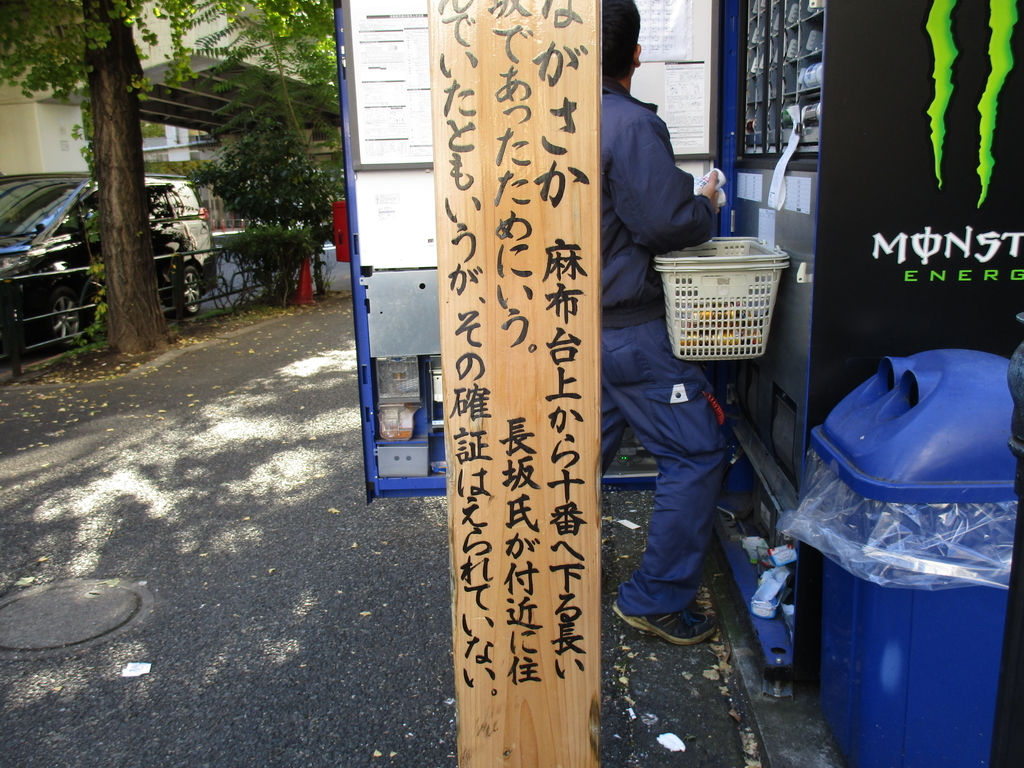 ながさか 麻布台上から十番へ下る長い
坂であったためにいう。 長坂氏が付近に住
んでいたともいうが、その確証はえられていない。
MONST
ENERG